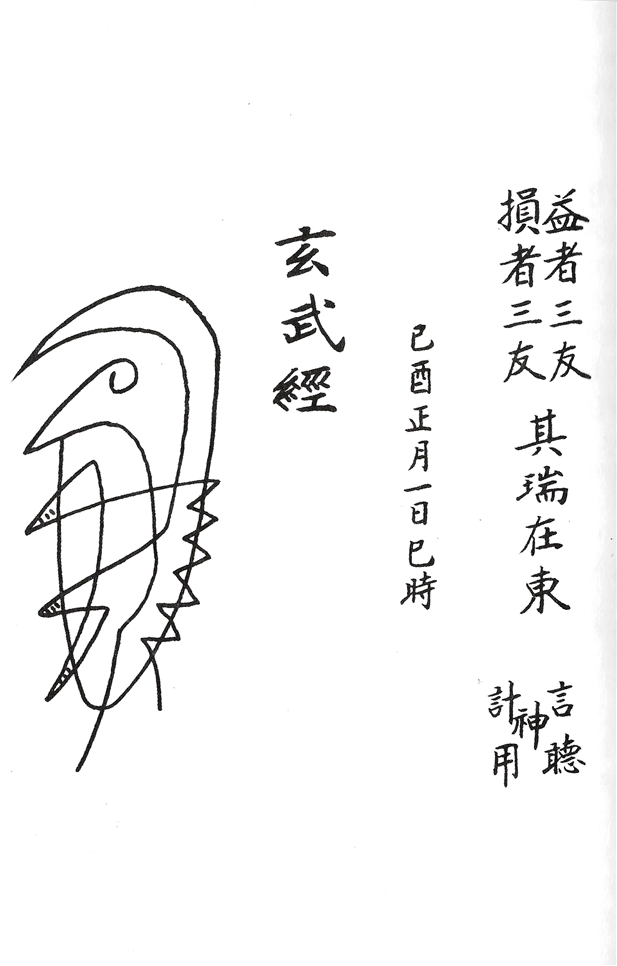 益者三友
損者三友
其瑞在東
言聽
神
計用
己酉正月一日巳時
玄武經